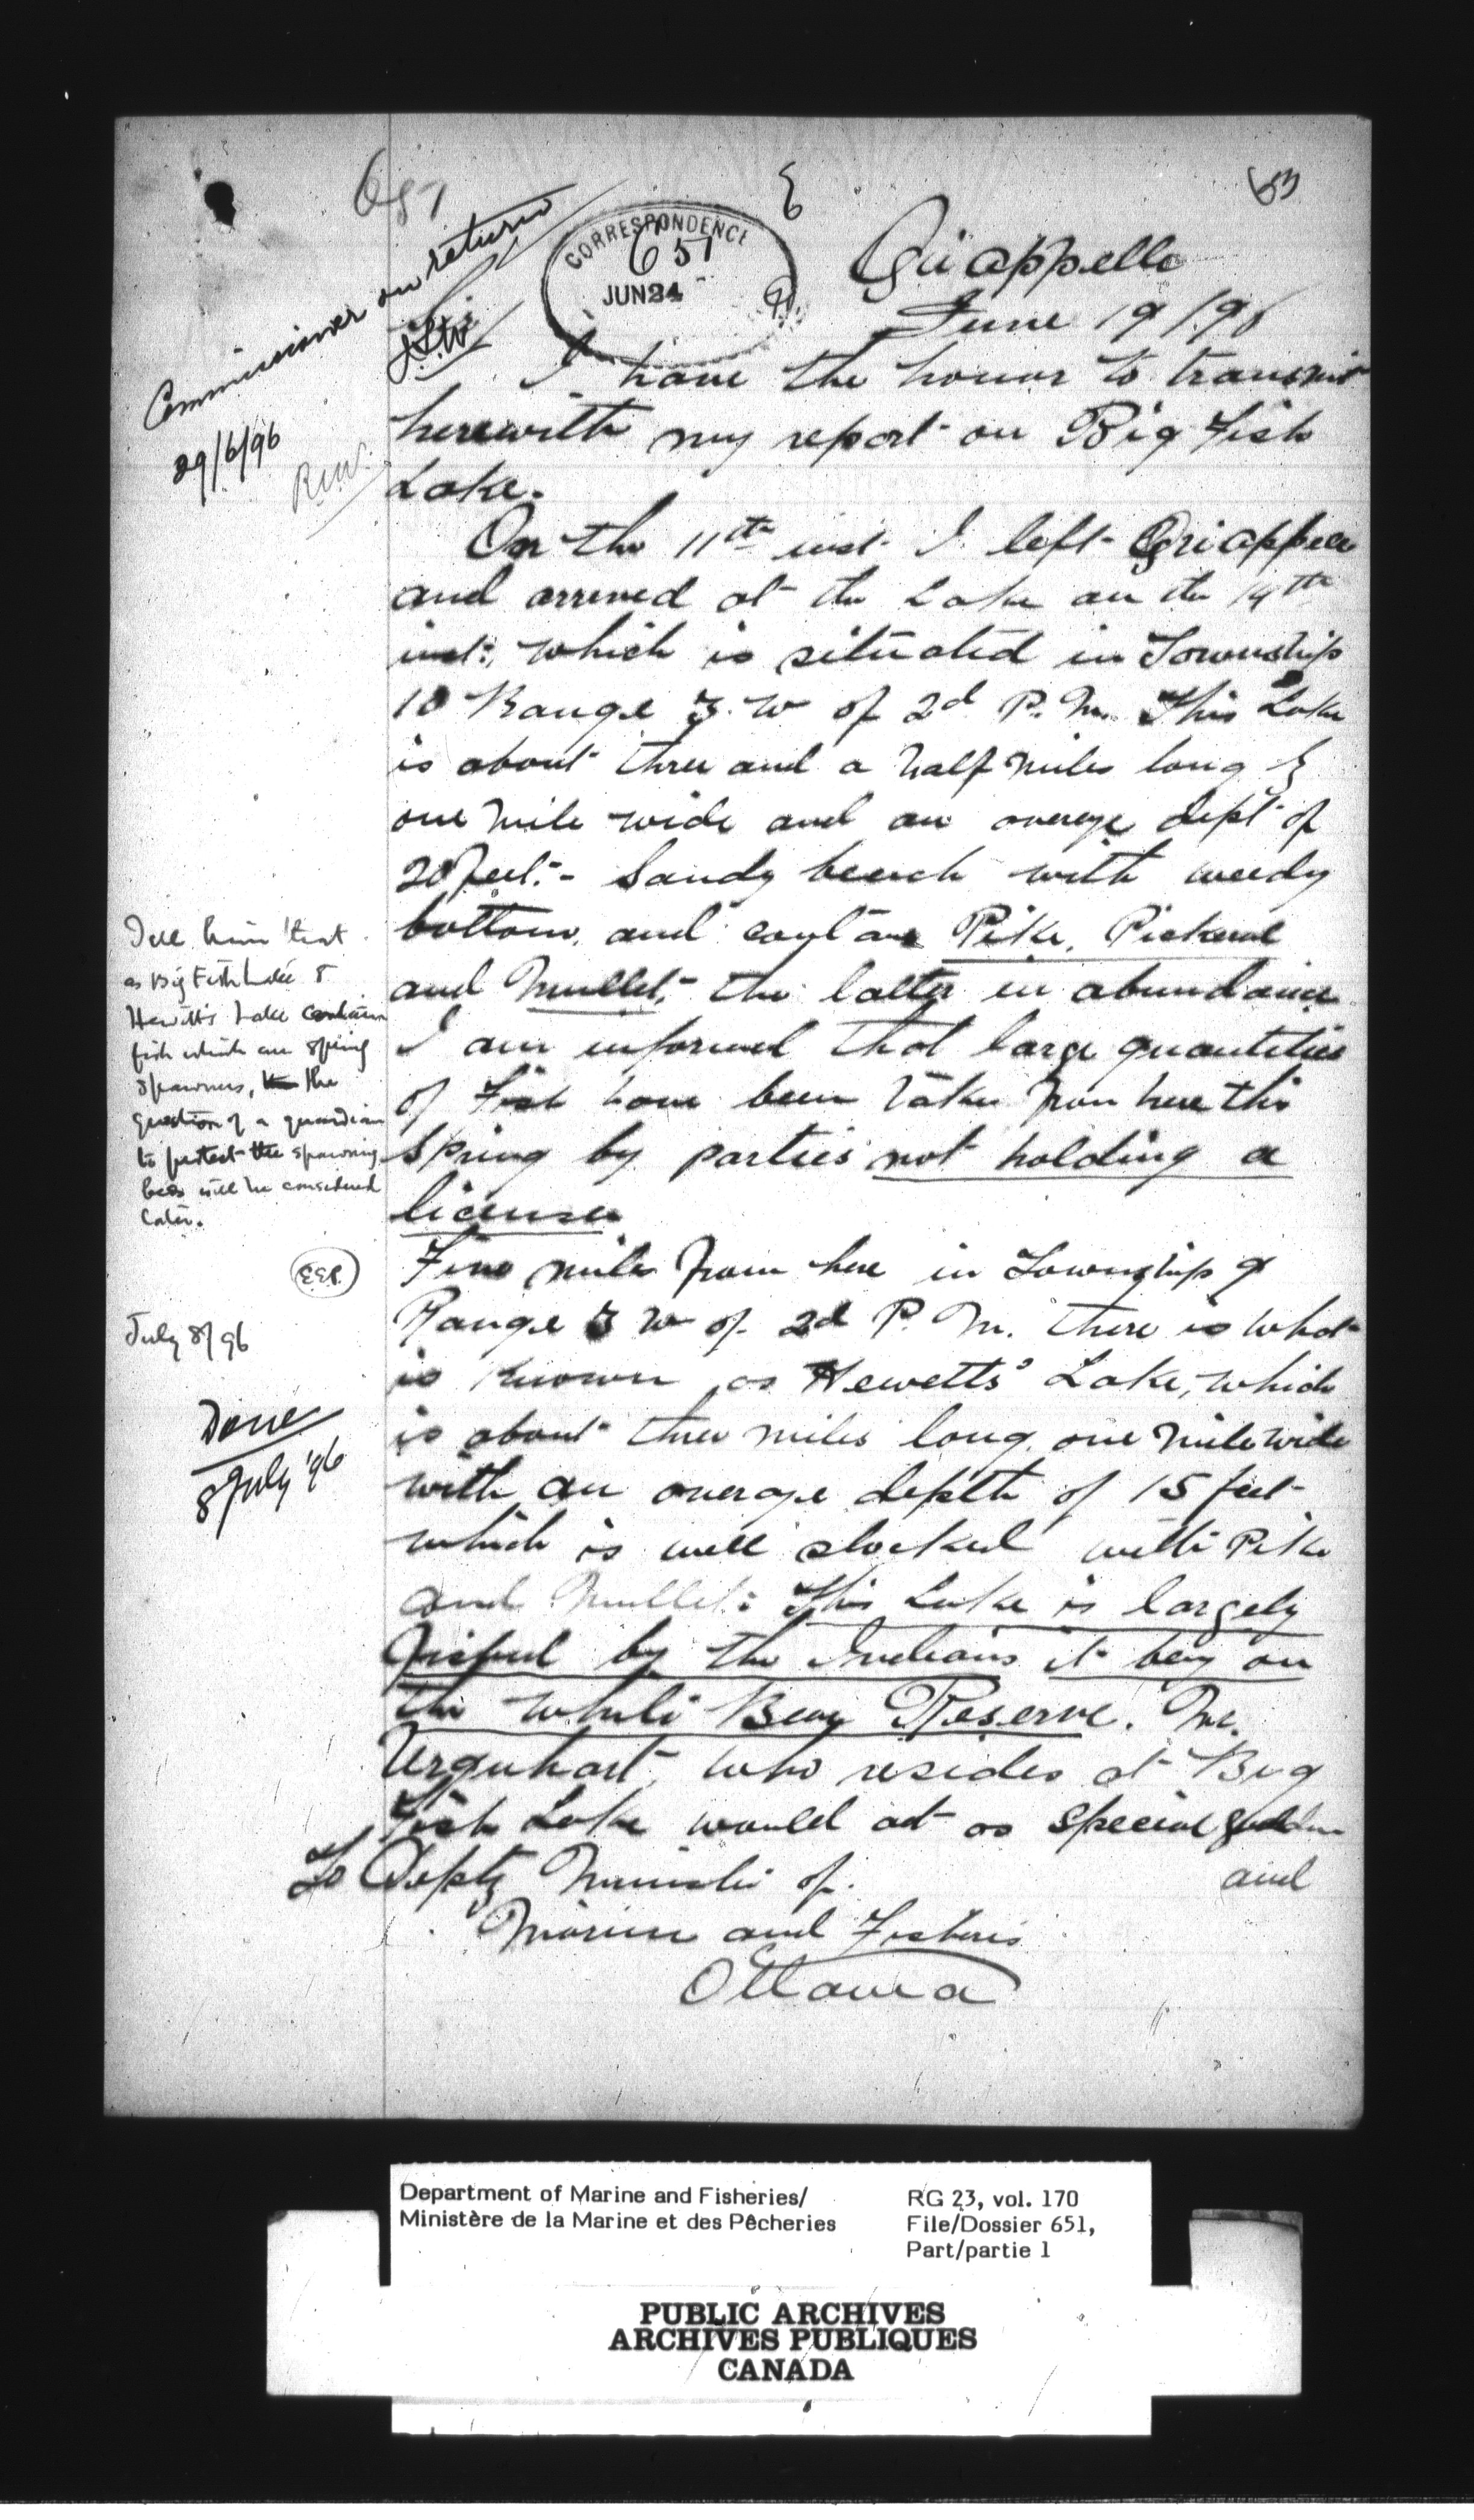 651
83
CORRESPONDENCE
651
JUN 24
Commissioner on return
29/6/96
R.W.
Qu'appelle
June 19/96
Sir
I have the honor to transmit
herewith my report on Big Fish
Lake.
On the 11th inst I left Qu'appelle
and arrived at the Lake on the 14th
inst: which is situated in Township
10 Range 3 W of 2d P. M. This Lake
is about three and a half miles long &
one mile wide and an averege dept of
20 feet. - Sandy beech with weedy
bottom, and contans Pike, Pickerel
and Mullet, the latter in abundance
I am informed that large quantities
of Fish have been taken from here this
Spring by parties not holding a
license
Five mile from here in Township 9
Range 3 W of 2d P. M. there is what
is known as Hewetts' Lake, which
is about three miles long, one mile wide
with an average depth of 15 feet
which is well stocked with Pike
and Mullet: This Lake is largely
fished by the Indians it being on
the White Bear Reserve. Mr.
Urquhart, who resides at Big
Fish Lake would act as special
and
To Depty Minister of
Marine and Fisheries
Ottawa
Tell him that
as Big Fish Lake &
Hewitt's Lake contain
fish which are spring
spawners, the
question of a guardian
to protect the spawning
beds will be considered
later.
E.E.P.
July 8/96
Done
8 July '96
Department of Marine and Fisheries/
Ministère de la Marine et des Pêcheries
RG 23, vol. 170
File/Dossier 651,
Part/partie 1
PUBLIC ARCHIVES
ARCHIVES PUBLIQUES
CANADA